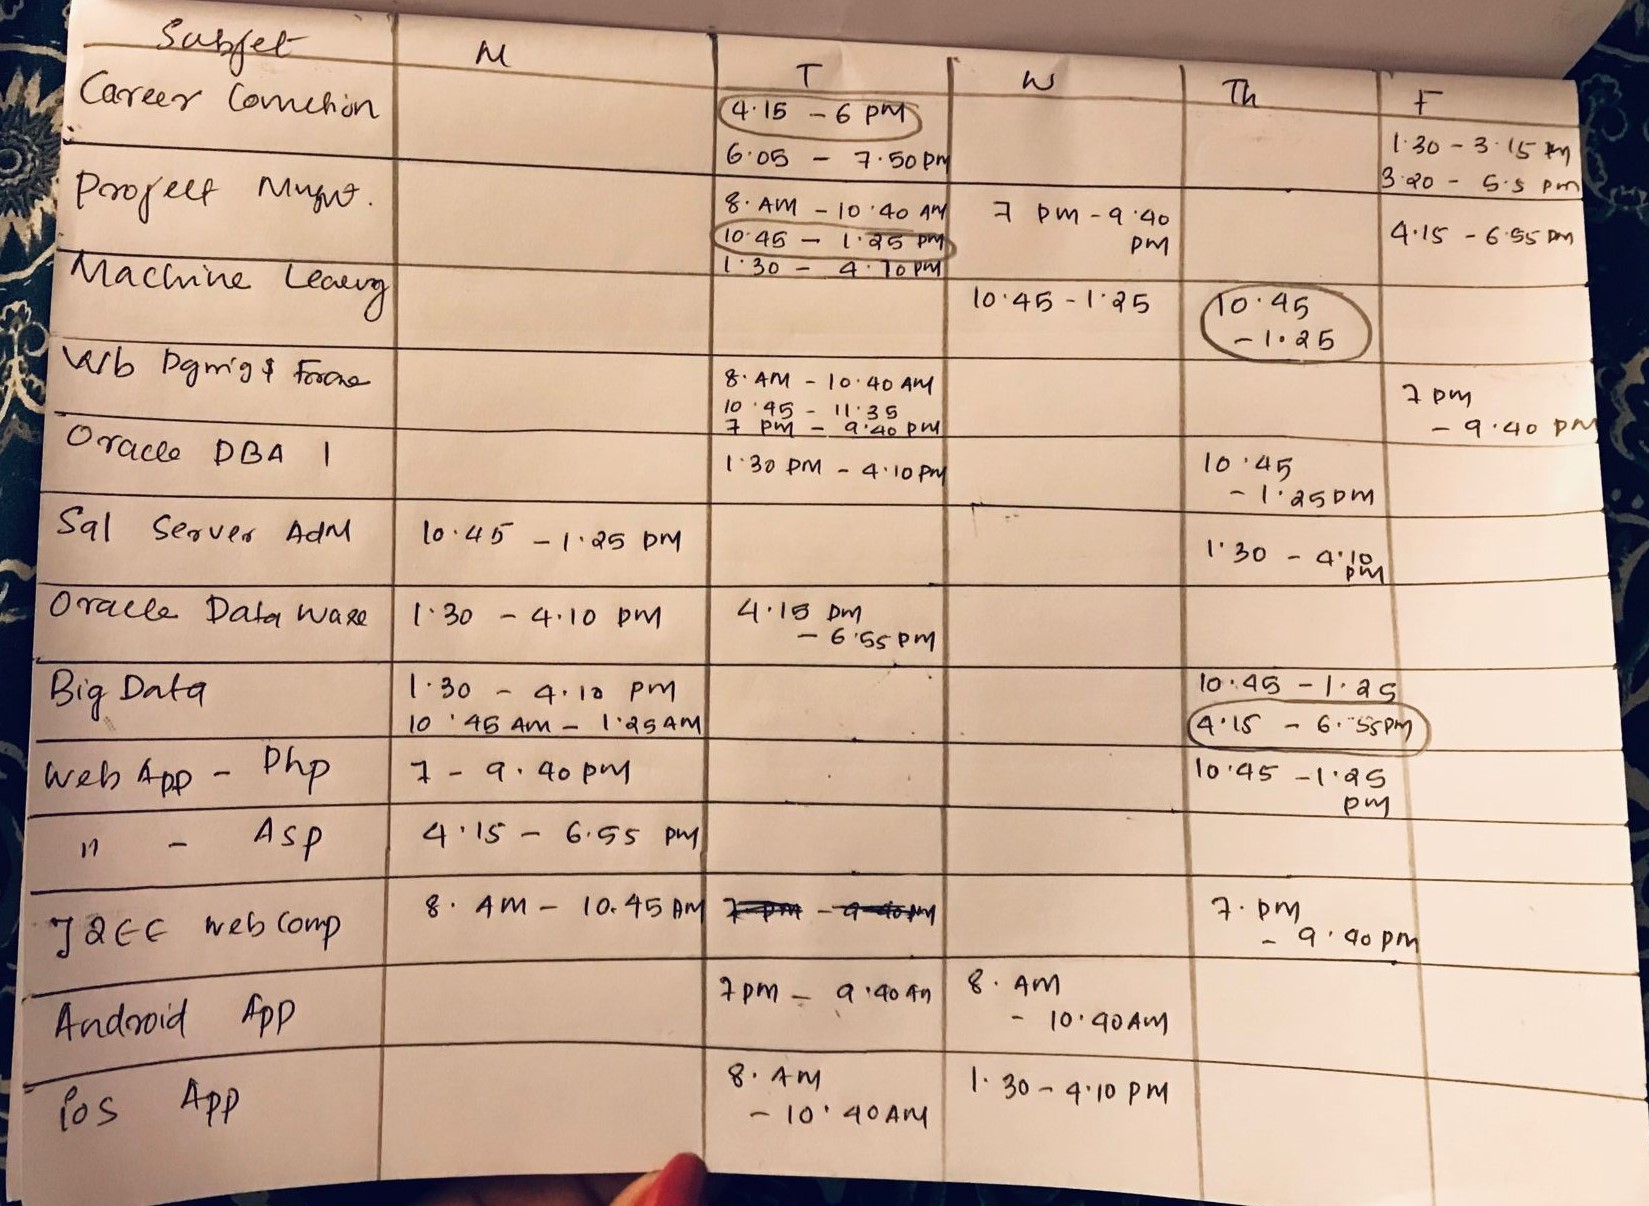 Subjet M T W Th F
Career Connection 4.15 - 6 PM
6.05 - 7.50 pm 1.30 - 3.15 pm
3.20 - 5.5 pm
Project Mngmt. 8. AM - 10.40 AM 7 pm - 9.40 pm 4.15 - 6.55 pm
10.45 - 1.25 pm
1.30 - 4.10 pm
Machine 10.45 - 1.25 10.45
- 1.25
8. AM - 10.40 AM 7 pm
10.45 - 11.35 - 9.40 PM
7 pm - 9.40 pm
Oracle DBA 1 1.30 PM - 4.10 PM 10.45
- 1.25 pm
Sql Server AdM 10.45 - 1.25 pm 1.30 - 4.10 pm
Oracle Data Ware 1.30 - 4.10 pm 4.15 pm
- 6.55 pm
Big Data 1.30 - 4.10 pm 10.45 - 1.25
10.45 AM - 1.25 AM 4.15 - 6.55 pm
Web App - Php 7 - 9.40 pm 10.45 - 1.25
pm
" - Asp 4.15 - 6.55 pm
J2EE web Comp 8. AM - 10.45 AM 7 pm - 9.40 pm 7. pm
- 9.40 pm
Android App 7 pm - 9.40 8. AM
- 10.40 AM
ios App 8. AM 1.30 - 4.10 PM
- 10.40 AM